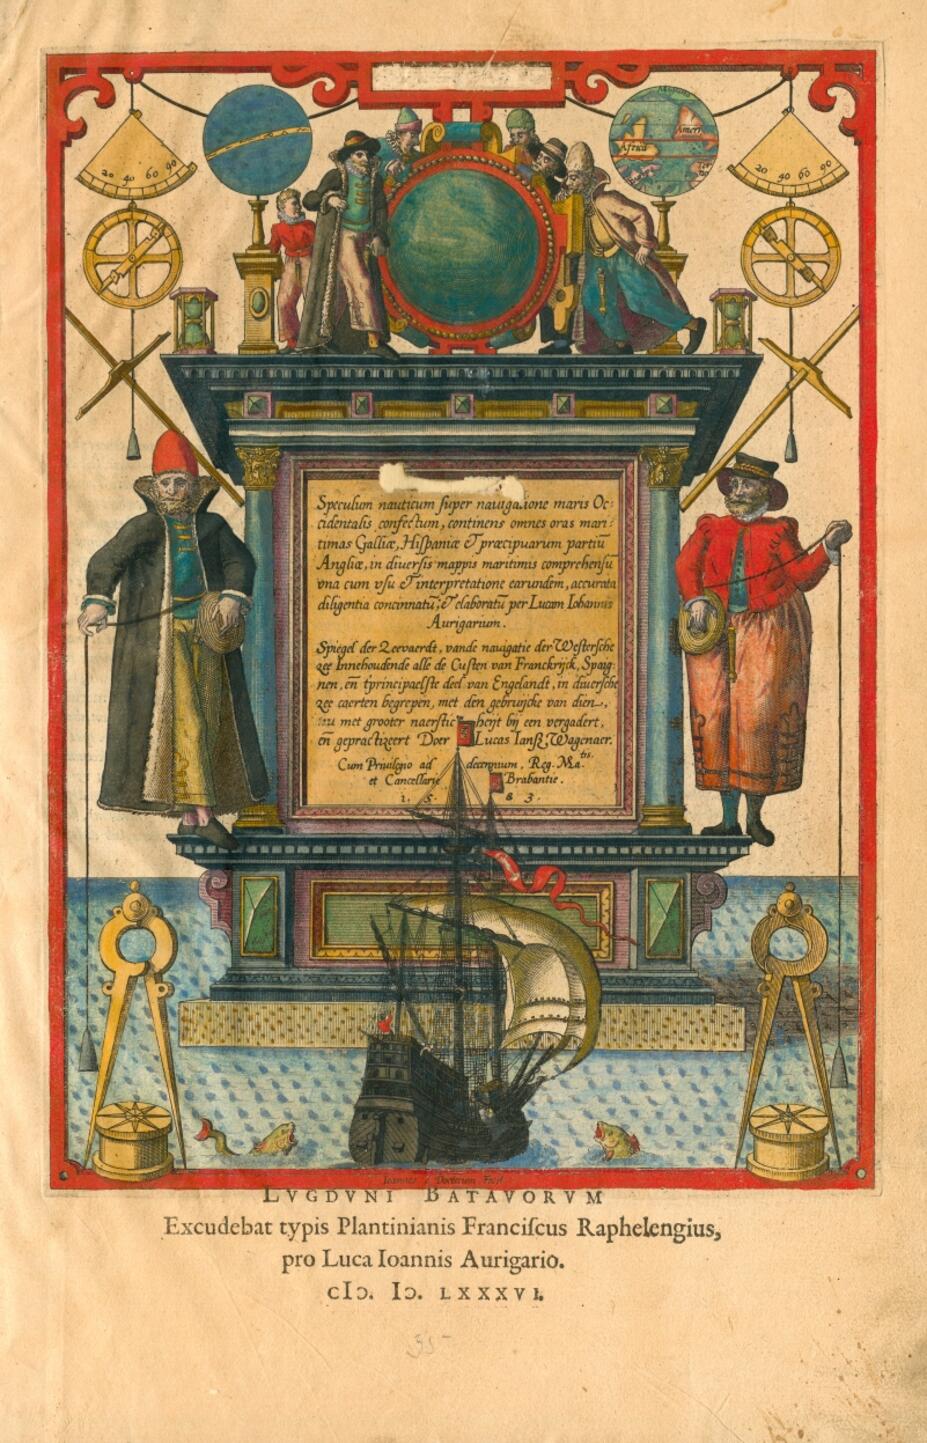 20 40 60 90
Africa
Ameri
20 40 60 90
Speculum nauticum super nauigatione maris Oc:
cidentalis confectum, continens omnes oras mari:
timas Galliæ, Hispaniæ & præcipuarum partiū
Angliæ, in diuersis mappis maritimis comprehensū
vna cum vsu & interpretatione earundem, accurata
diligentia concinnatū, & elaboratū per Lucam Iohannis
Aurigarium.
Spiegel der Zeevaerdt, vande nauigatie der Westersche
zee Innehoudende alle de Custen van Franckrijck, Spaig
nen, eñ tprincipaelste deel van Engelandt, in diuersche
zee caerten begrepen, met den gebruijcke van dien,
met grooter naerstic heijt bij een vergadert,
eñ gepractizeert Doer Lucas Iansz Wagenaer.
Cum Priuilegio ad decennium, Reg. Ma.tis
et Cancellarie Brabantie.
1. 5. 8 3.
Ioannes a Doetecum Fecit
LVGDVNI BATAVORVM
Excudebat typis Plantinianis Franciſcus Raphelengius,
pro Luca Ioannis Aurigario.
cIɔ. Iɔ. LXXXVI.
35